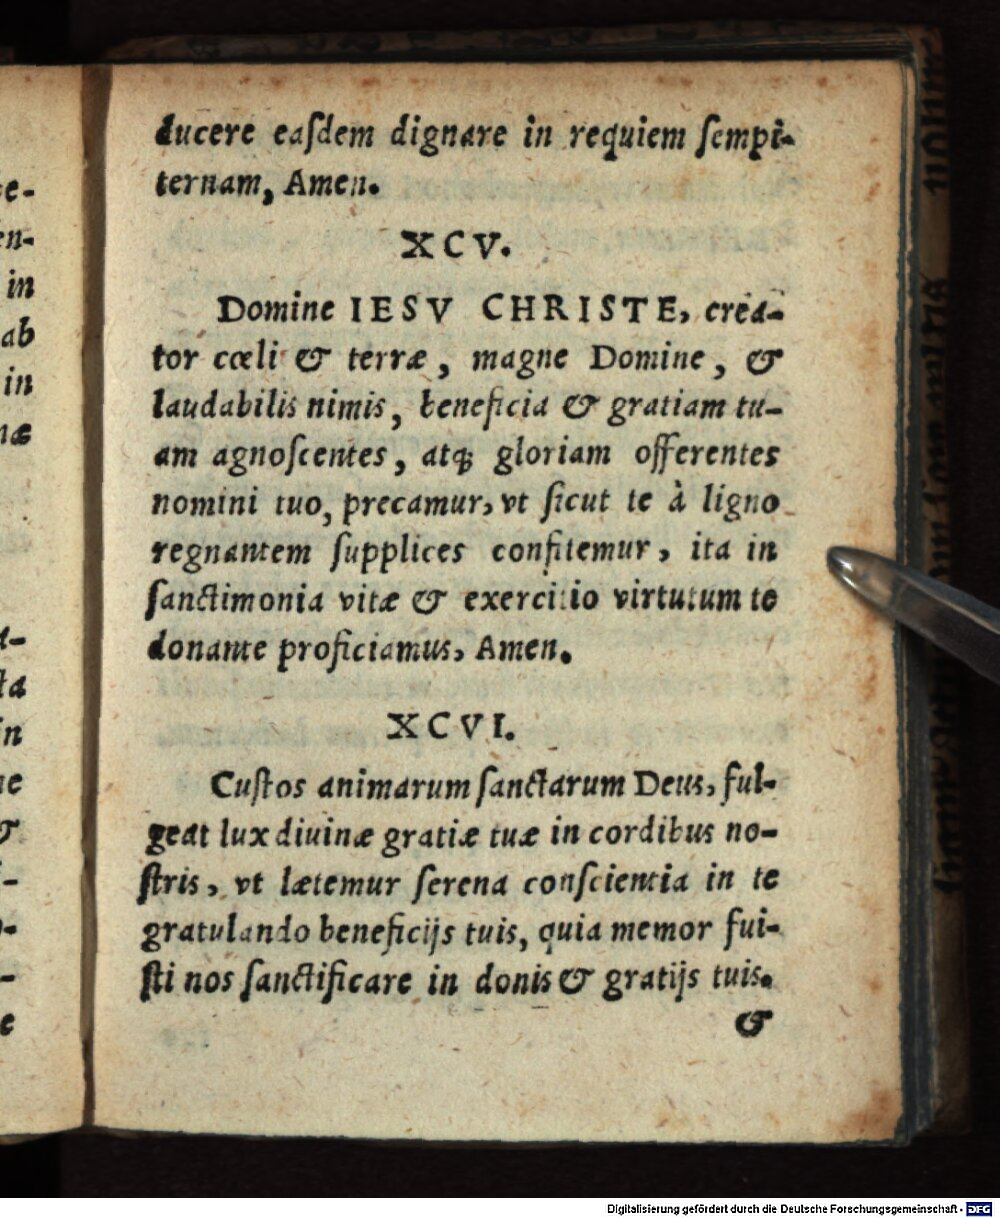 ducere eaſdem dignare in requiem ſempi-
ternam, Amen.
XCV.
Domine IESV CHRISTE, crea-
tor cœli & terræ, magne Domine, &
laudabilis nimis, beneficia & gratiam tu-
am agnoſcentes, atq; gloriam offerentes
nomini tuo, precamur, vt ſicut te à ligno
regnantem ſupplices confitemur, ita in
ſanctimonia vitæ & exercitio virtutum te
donante proficiamus, Amen.
XCVI.
Cuſtos animarum ſanctarum Deus, ful-
geat lux diuinæ gratiæ tuæ in cordibus no-
ſtris, vt lætemur ſerena conſcientia in te
gratulando beneficijs tuis, quia memor fui-
ſti nos ſanctificare in donis & gratijs tuis.
&
Digitalisierung gefördert durch die Deutsche Forschungsgemeinschaft - DFG